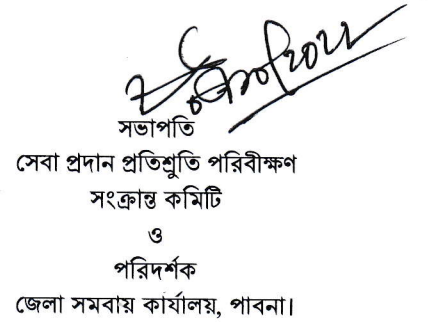 সভাপতি
সেবা প্রদান প্রতিশ্রুতি পরিবীক্ষণ
সংক্রান্ত কমিটি
ও
পরিদর্শক
জেলা সমবায় কার্যালয়, পাবনা।